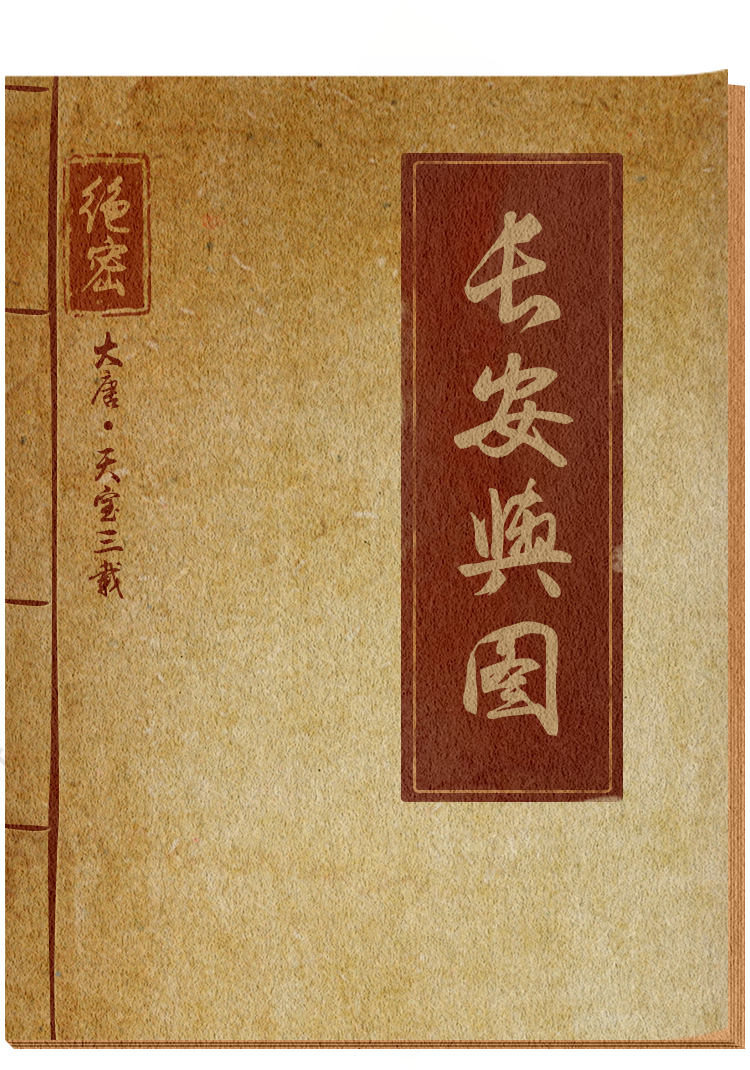 长安舆图
绝密
大唐·天宝三载